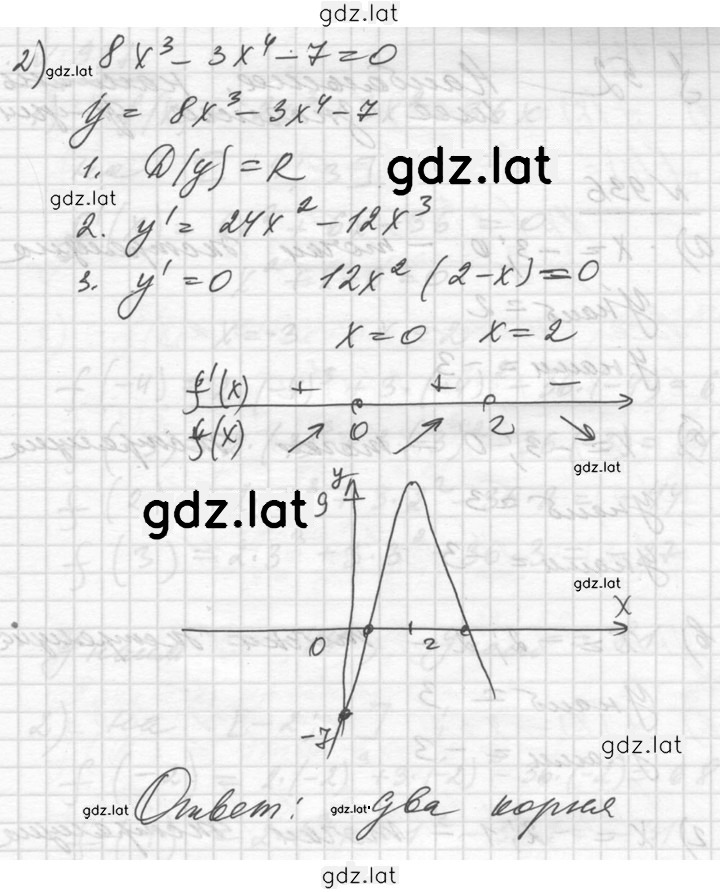 gdz.lat
2) 8x³ - 3x⁴ - 7 = 0
gdz.lat
y = 8x³ - 3x⁴ - 7
1. D(y) = R
gdz.lat
gdz.lat
2. y' = 24x² - 12x³
3. y' = 0 12x² (2 - x) = 0
x = 0 x = 2
f'(x) + + −
f(x) ↗ 0 ↗ 2 ↘
gdz.lat
y
9
gdz.lat
gdz.lat
x
0 2
-7
gdz.lat
gdz.lat Ответ: gdz.lat два корня
gdz.lat